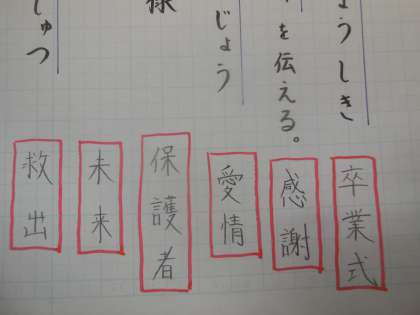 ょうしき
を伝える。
じょう
様
しゅつ
卒業式
感謝
愛情
保護者
未来
救出